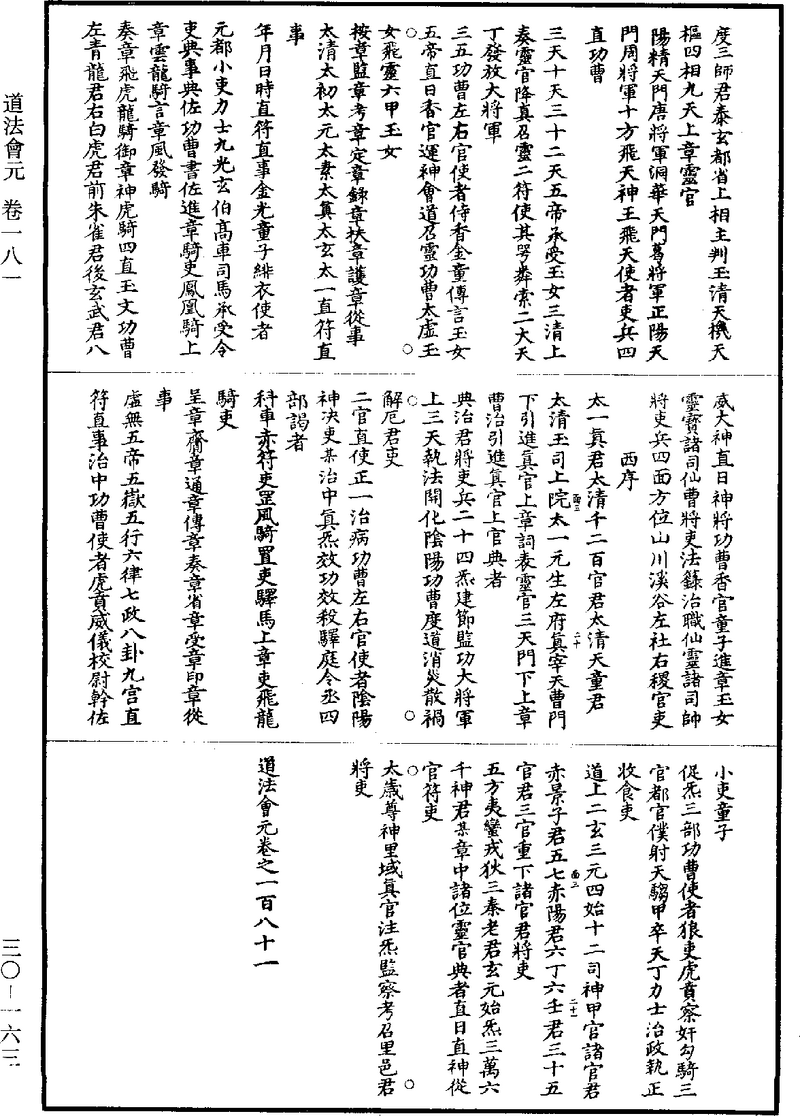 道法會元 卷一八一
三〇—一六三
度三師君泰玄都省上相主判玉清天機天
樞四相九天上章靈官
陽精天門唐將軍洞華天門葛將軍正陽天
門周將軍十方飛天神王飛天使者吏兵四
直功曹
三天十天三十二天五帝承受玉女三清上
奏靈官降真召靈二符使其咢粦索二大天
丁發放大將軍
三五功曹左右官使者侍香金童傳言玉女
五帝直日香官運神會道召靈功曹太虛玉
女飛靈六甲玉女
按章監章考章定章錄章扶章護章從事
太清太初太元太素太真太玄太一直符直
事
年月日時直符直事金光童子緋衣使者
元都小吏力士九光玄伯高車司馬承受令
吏典事典佐功曹書佐進章騎吏鳳凰騎上
章雲龍騎言章風發騎
奏章飛虎龍騎御章神虎騎四直玉文功曹
左青龍君右白虎君前朱雀君後玄武君八
威大神直日神將功曹香官童子進章玉女
靈寶諸司仙曹將吏法籙治職仙靈諸司帥
將吏兵四面方位山川溪谷左社右稷官吏
西序
太一真君太清千二百官君太清天童君
太清玉司上院太一元生左府真宰天曹門
下引進真官上章詞表靈官三天門下上章
曹治引進真官上官典者
典治君將吏兵二十四炁建節監功大將軍
上三天執法開化陰陽功曹度道消災散禍
解厄君吏
二官直使正一治病功曹左右官使者陰陽
神決吏某治中真炁效功效殺驛庭令丞四
部謁者
科車赤符吏罡風騎置吏驛馬上章吏飛龍
騎吏
呈章齎章通章傳章奏章省章受章印章從
事
虛無五帝五嶽五行六律七政八卦九宮直
符直事治中功曹使者虎賁威儀校尉幹佐
小吏童子
促炁三部功曹使者狼吏虎賁察奸勾騎三
官都官僕射天騶甲卒天丁力士治政執正
收食吏
道上二玄三元四始十二司神甲官諸官君
赤景子君五七赤陽君六丁六壬君三十五
官君三官重下諸官君將吏
五方夷蠻戎狄三秦老君玄元始炁三萬六
千神君某章中諸位靈官典者直日直神從
官符吏
太歲尊神里域真官注炁監察考召里邑君
將吏
道法會元卷之一百八十一